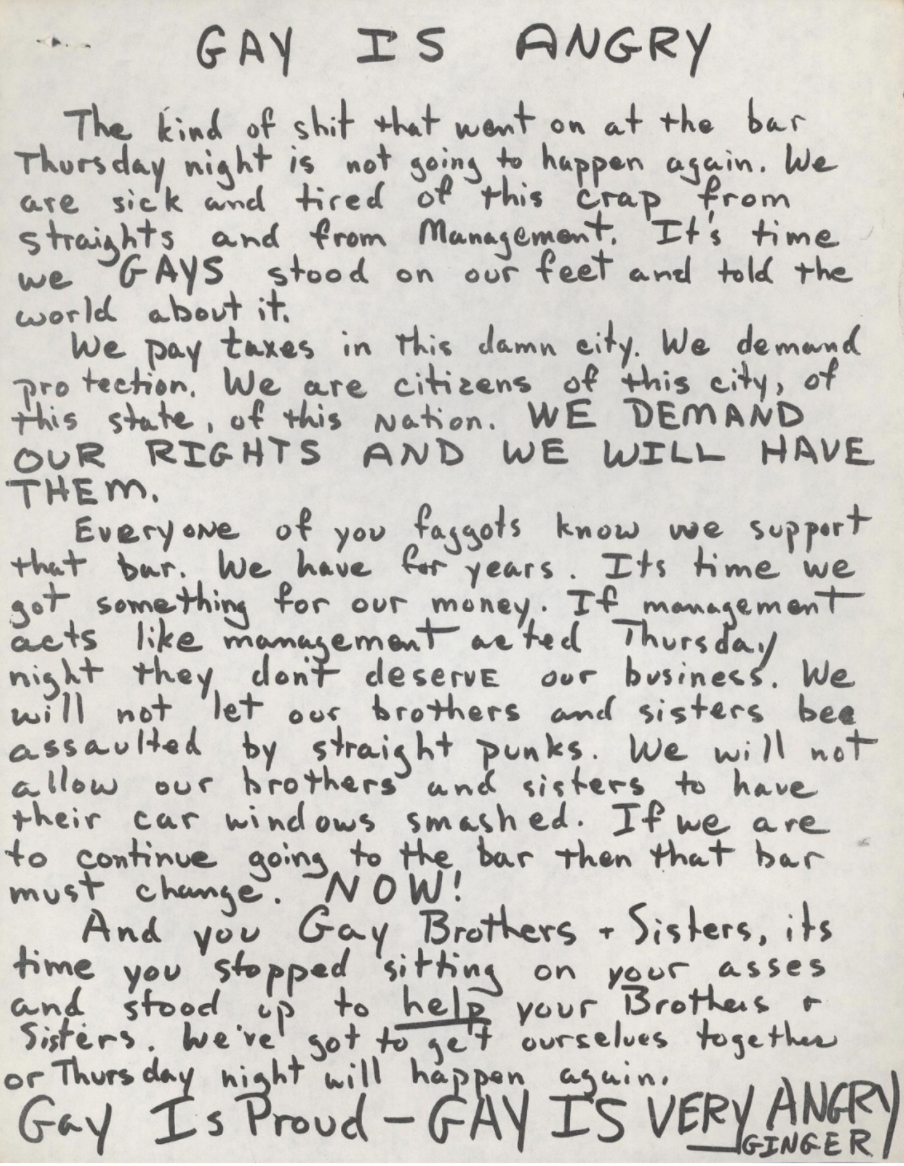 GAY IS ANGRY
The kind of shit that went on at the bar
Thursday night is not going to happen again. We
are sick and tired of this crap from
straights and from Management. It's time
we GAYS stood on our feet and told the
world about it.
We pay taxes in this damn city. We demand
protection. We are citizens of this city, of
this state, of this Nation. WE DEMAND
OUR RIGHTS AND WE WILL HAVE
THEM.
Everyone of you faggots know we support
that bar. We have for years. Its time we
got something for our money. If management
acts like management acted Thursday
night they don't deserve our business. We
will not let our brothers and sisters bee
assaulted by straight punks. We will not
allow our brothers and sisters to have
their car windows smashed. If we are
to continue going to the bar then that bar
must change. NOW!
And you Gay Brothers + Sisters, its
time you stopped sitting on your asses
and stood up to help your Brothers +
Sisters. We've got to get ourselves together
or Thursday night will happen again.
Gay Is Proud - GAY IS VERY ANGRY
GINGER